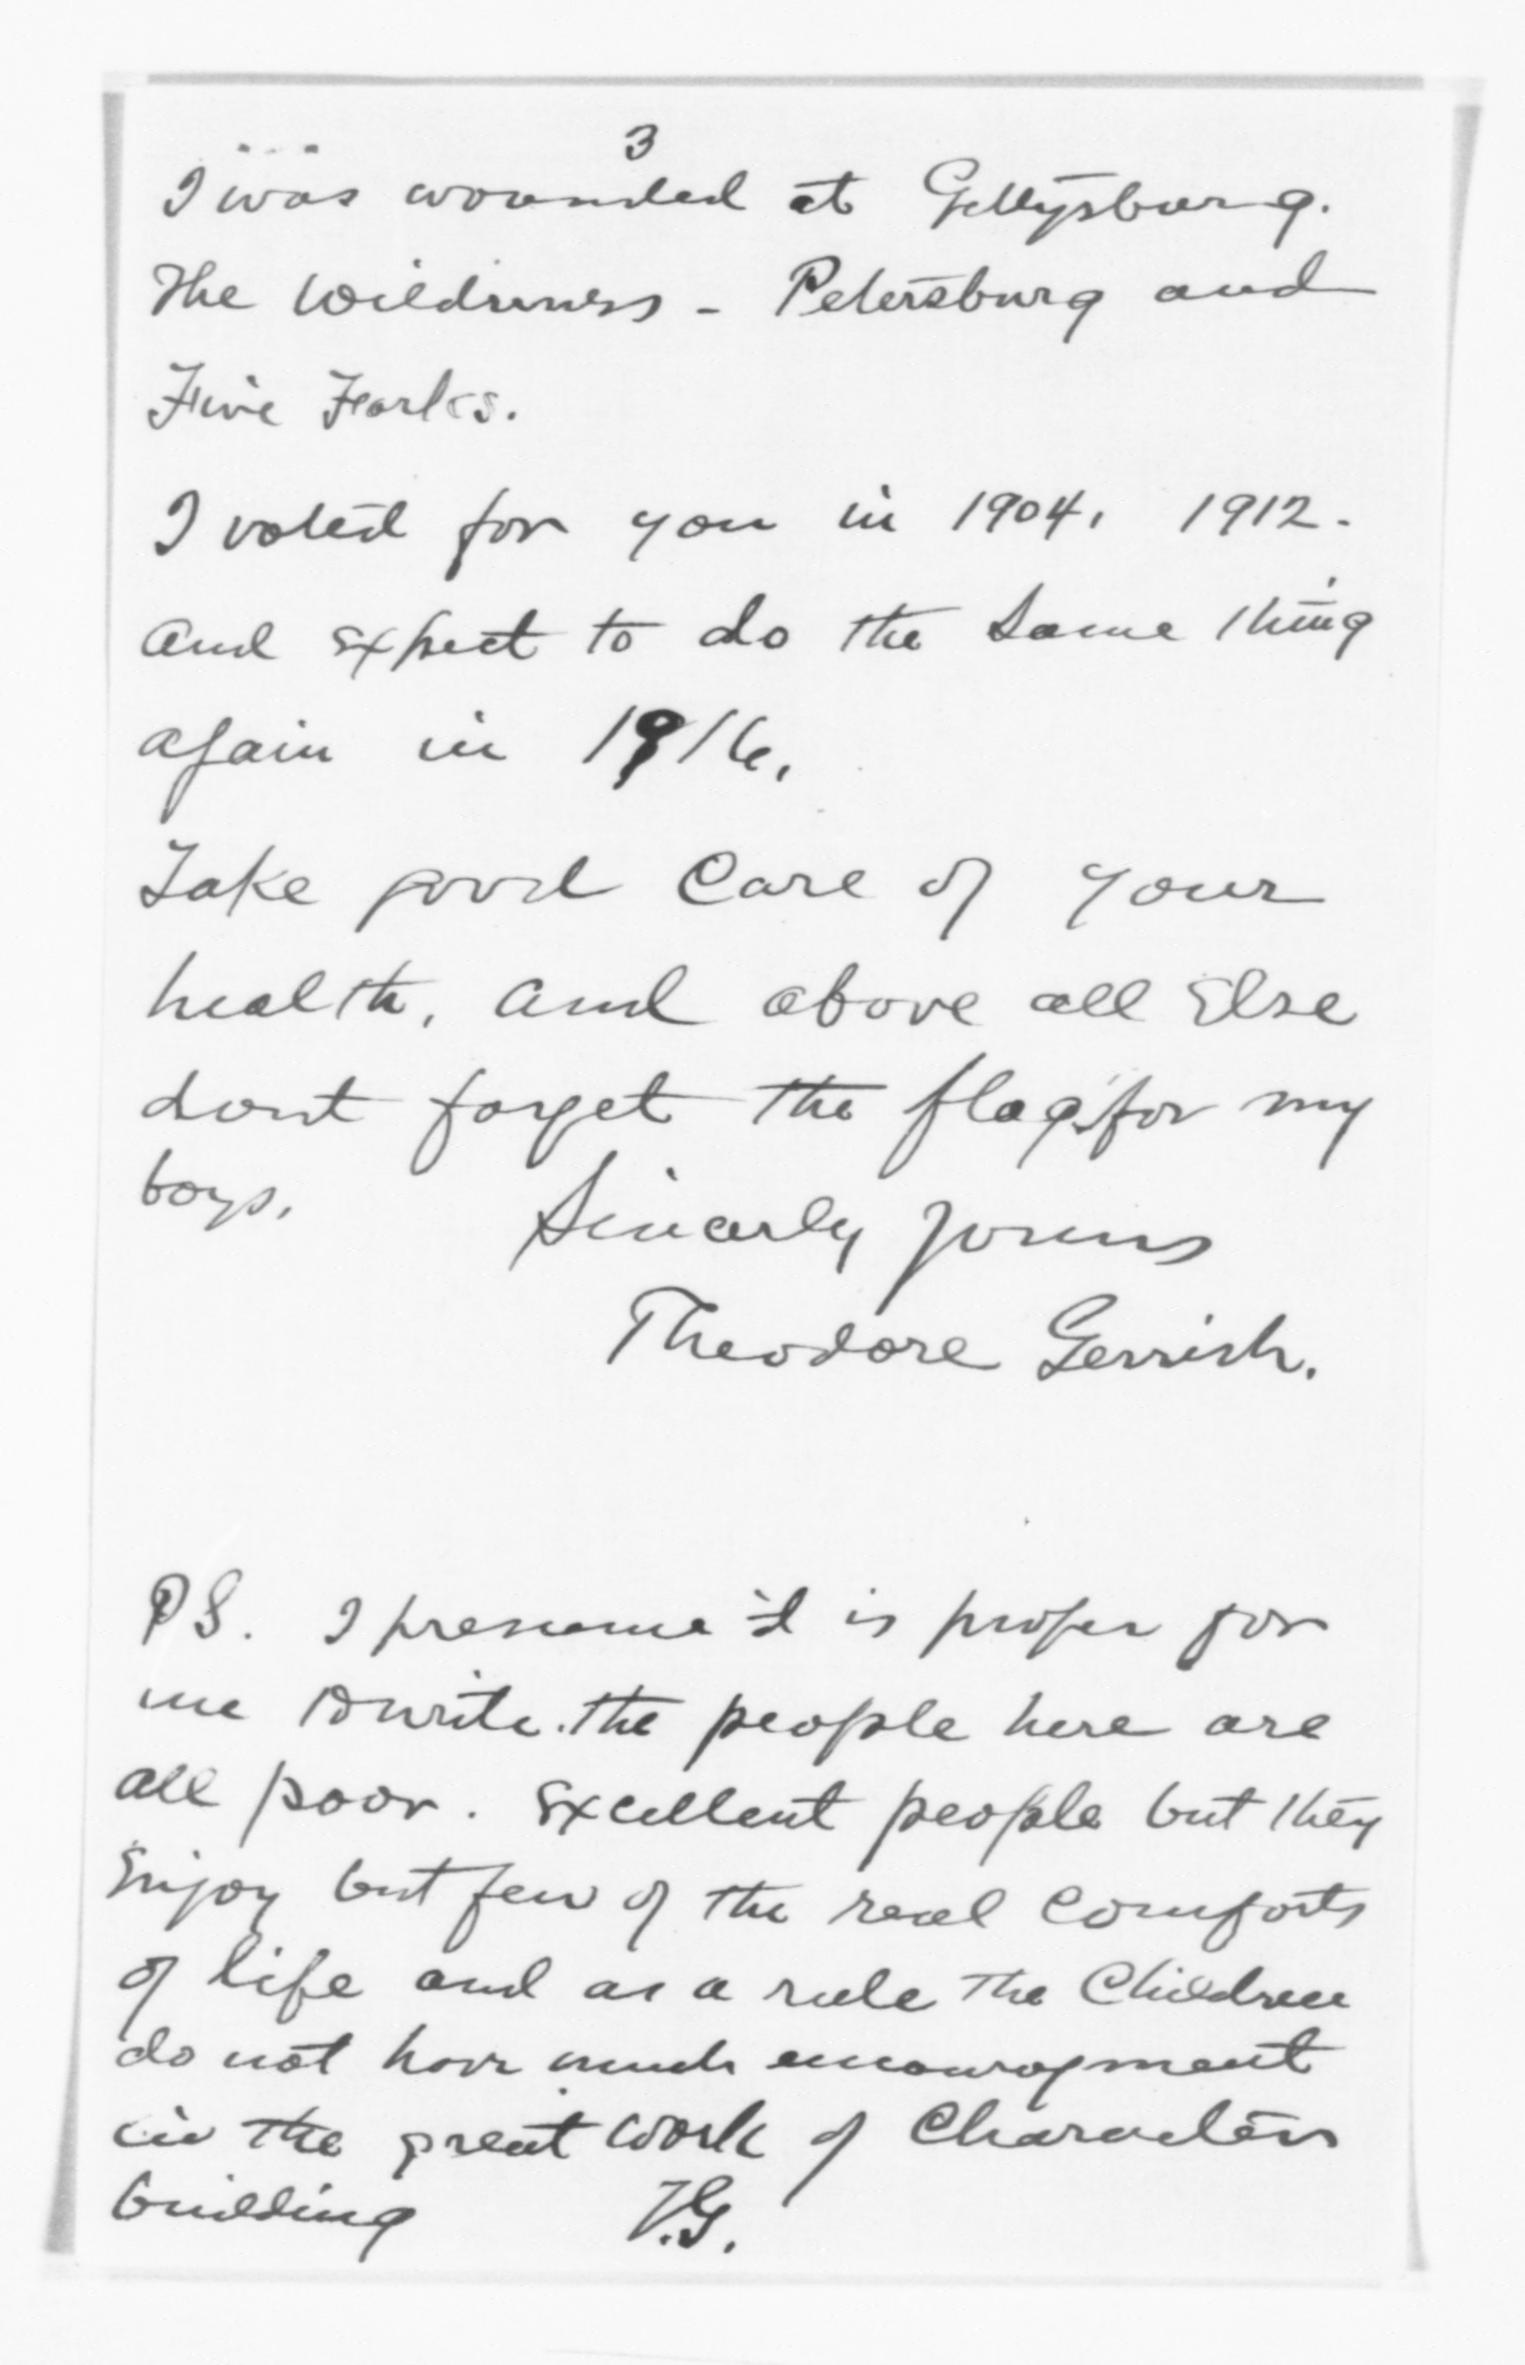 3
I was wounded at Gettysburg.
The Wilderness - Petersburg and
Five Forks.
I voted for you in 1904, 1912.
and expect to do the same thing
again in 1916.
Take good care of your
health, and above all Else
dont forget the flag for my
boys.
Sincerly yours
Theodore Gerrish.
PS. I presume it is proper for
me to write. the people here are
all poor. Excellent people but they
Enjoy but few of the real Comforts
of life and as a rule the Children
do not have much encouragment
in the great work of Character
building T.G.